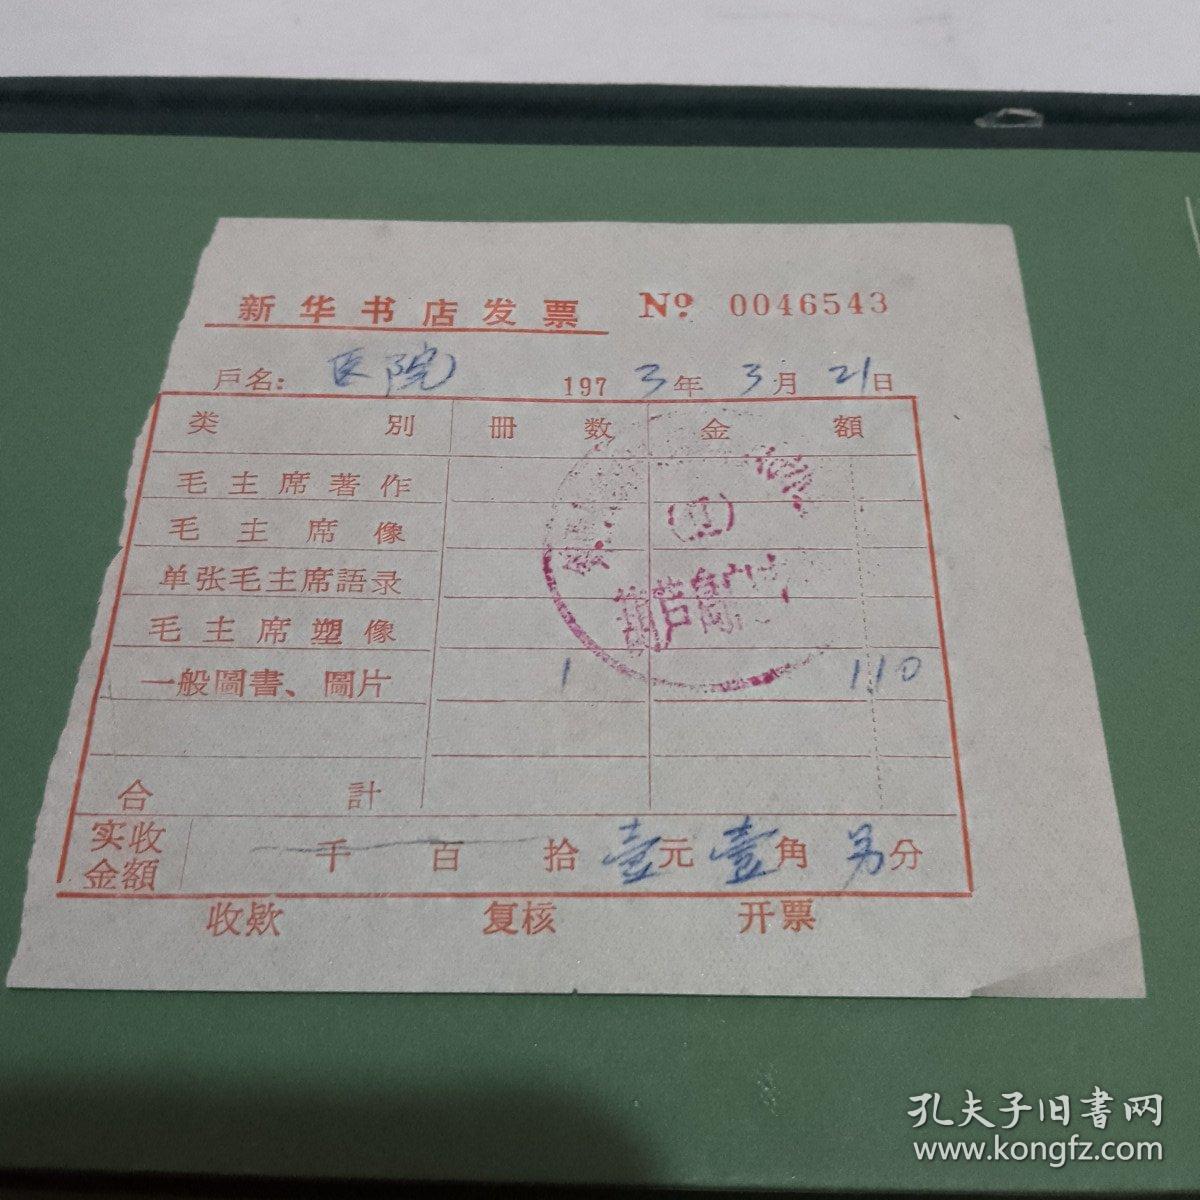 新华书店发票 Nº 0046543
戶名：医院 1973年3月21日
类別 冊数 金額
毛主席著作
毛主席像
单张毛主席語录
毛主席塑像
一般圖書、圖片 1 110
合計
实收金額 千百拾壹元壹角另分
收欵 复核 开票
(红)
葫芦
孔夫子旧书网
www.kongfz.com